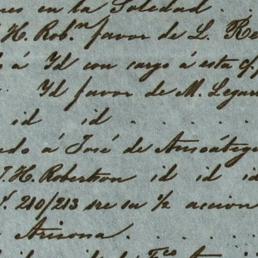 res en la Soledad .
H. Robⁿ favor de L. Re
o á Yd con cargo á este c/
Yd favor de M. Legar
id id . . . . .
do á José de Aniscátegu
J. H. Robertson id id id
ſ. 210/213 sre su ½ accion
Arizona . . . . .